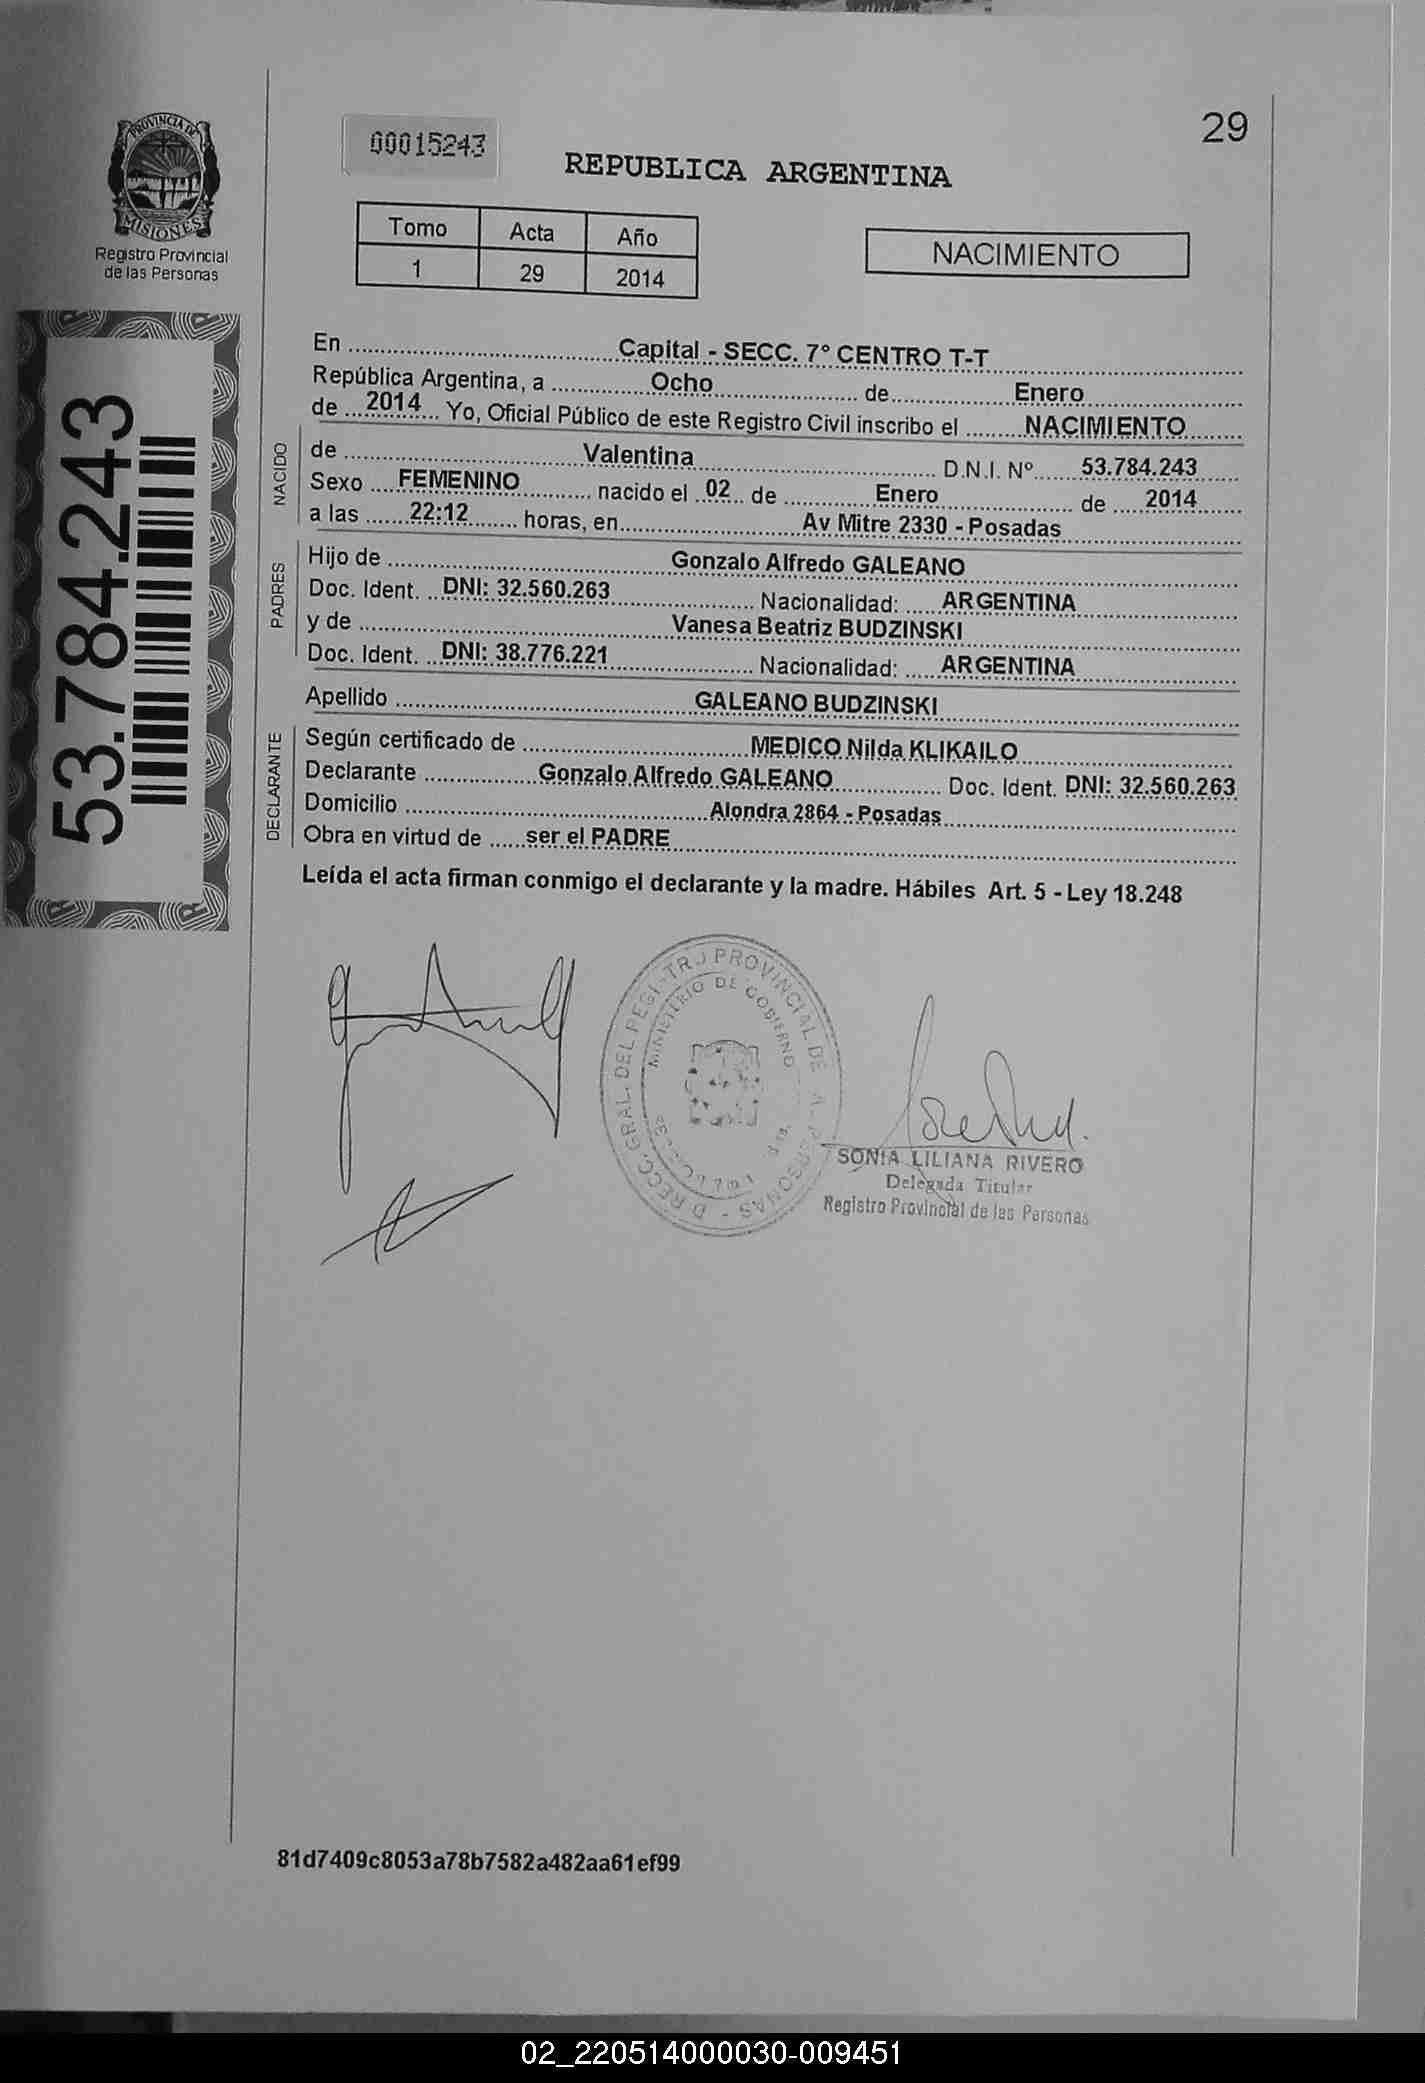 29
PROVINCIA DE
MISIONES
Registro Provincial
de las Personas
00015243
REPUBLICA ARGENTINA
Tomo Acta Año
1 29 2014
NACIMIENTO
53.784.243
En Capital - SECC. 7° CENTRO T-T
República Argentina, a Ocho de Enero
de 2014 Yo, Oficial Público de este Registro Civil inscribo el NACIMIENTO
NACIDO
de Valentina D.N.I. Nº 53.784.243
Sexo FEMENINO nacido el 02 de Enero de 2014
a las 22:12 horas, en Av Mitre 2330 - Posadas
PADRES
Hijo de Gonzalo Alfredo GALEANO
Doc. Ident. DNI: 32.560.263 Nacionalidad: ARGENTINA
y de Vanesa Beatriz BUDZINSKI
Doc. Ident. DNI: 38.776.221 Nacionalidad: ARGENTINA
Apellido GALEANO BUDZINSKI
DECLARANTE
Según certificado de MEDICO Nilda KLIKAILO
Declarante Gonzalo Alfredo GALEANO Doc. Ident. DNI: 32.560.263
Domicilio Alondra 2864 - Posadas
Obra en virtud de ser el PADRE
Leída el acta firman conmigo el declarante y la madre. Hábiles Art. 5 - Ley 18.248
GRAL. DEL PROVINCIAL DE
MINISTERIO DE GOBIERNO
SONIA LILIANA RIVERO
Delegada Titular
Registro Provincial de las Personas
81d7409c8053a78b7582a482aa61ef99
02_220514000030-009451